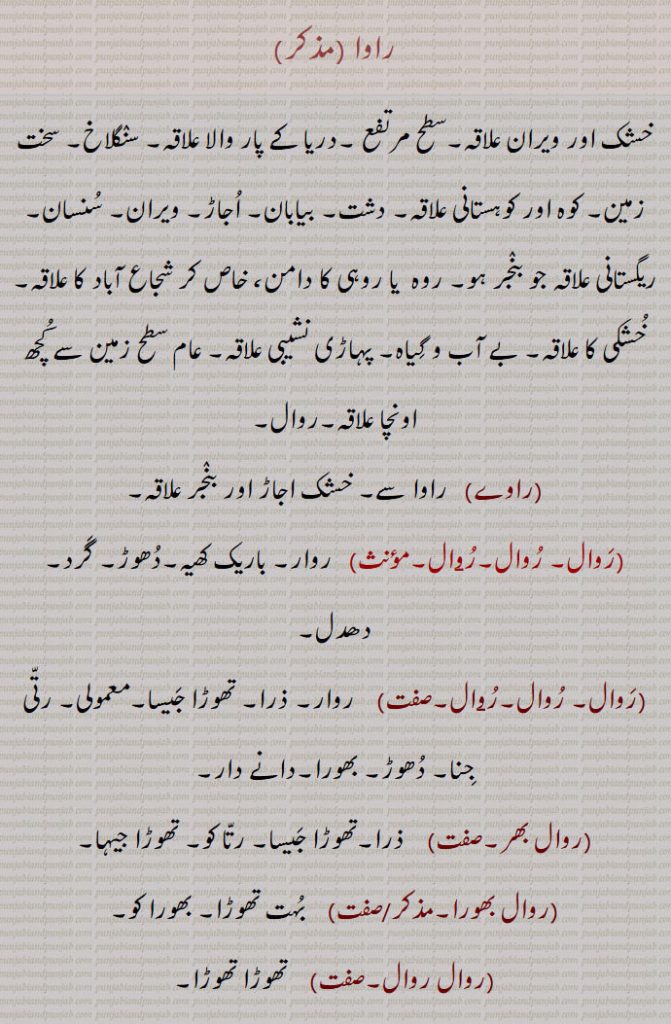 راوا (مذکر)
خشک اور ویران علاقہ۔ سطح مرتفع ۔دریا کے پار والا علاقہ۔ سنٛگلاخ۔ سخت
زمین۔ کوہ اور کوہستانی علاقہ۔ دشت۔ بیابان۔ اُجاڑ۔ ویران۔ سُنسان۔
ریگستانی علاقہ جو بنٛجر ہو۔ روہ یا روہی کا دامن، خاص کر شجاع آباد کا علاقہ۔
خُشکی کا علاقہ۔ بے آب و گِیاہ۔ پہاڑی نشیبی علاقہ۔ عام سطح زمین سے کُچھ
اونچا علاقہ۔روال۔
(راوے) راوا سے۔ خشک اجاڑ اور بنٛجر علاقہ۔
(رَوال۔ رُوال۔رُ2وال۔مؤنث) روار۔ باریک کھیہ۔دُھوڑ۔ گَرد۔
دھدل۔
(رَوال۔ رُوال۔رُ2وال۔صفت) روار۔ ذرا۔ تھوڑا جَیسا۔معمولی۔ رتّی
جِنا۔ دُھوڑ۔ بھورا۔دانے دار۔
(روال بھر۔صفت) ذرا۔تھوڑا جَیسا۔ رتّا کو۔ تھوڑا جیہا۔
(روال بھورا۔مذکر/صفت) بہُت تھوڑا۔ بھورا کو۔
(روال روال۔صفت) تھوڑا تھوڑا۔